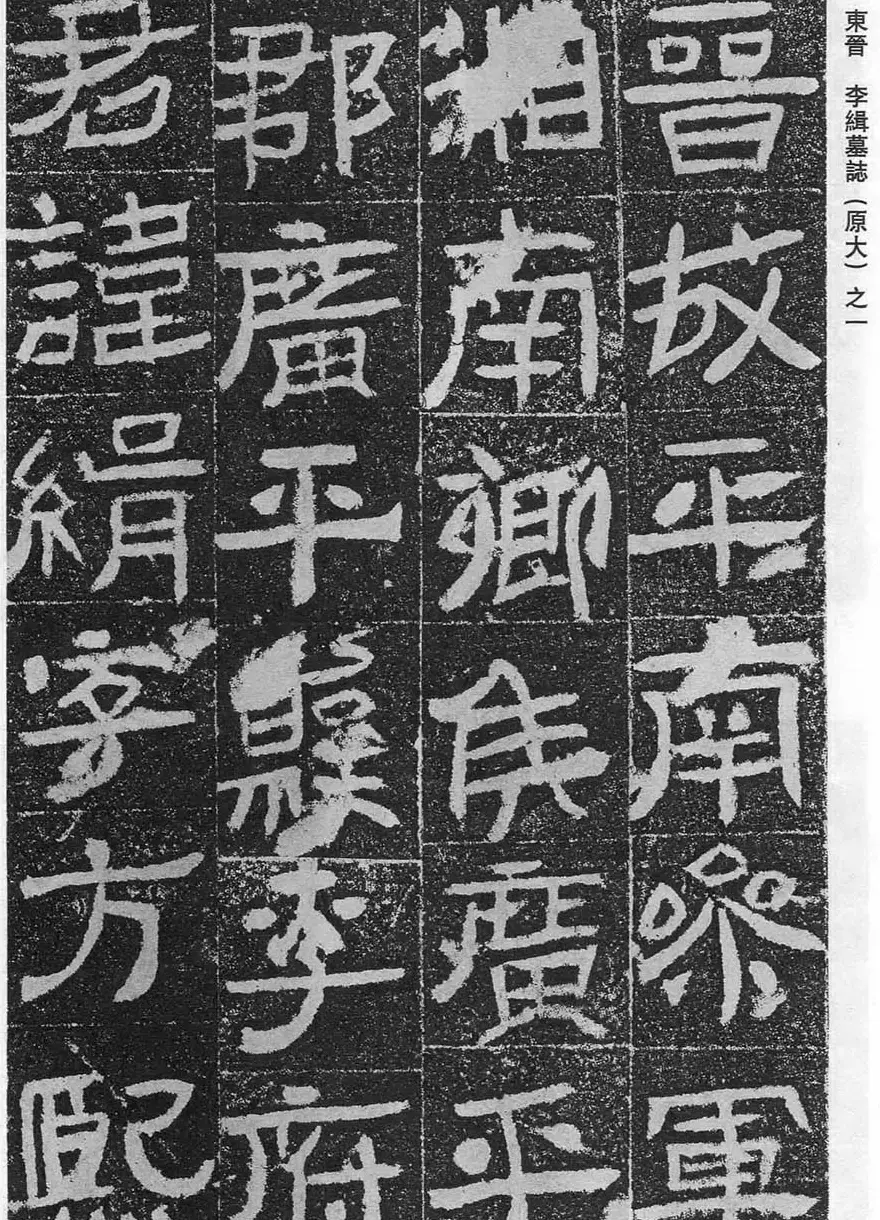 東晉 李緝墓誌（原大）之一
晉故平南參軍
湘南鄉侯廣平
郡廣平縣李府
君諱緝字方熙